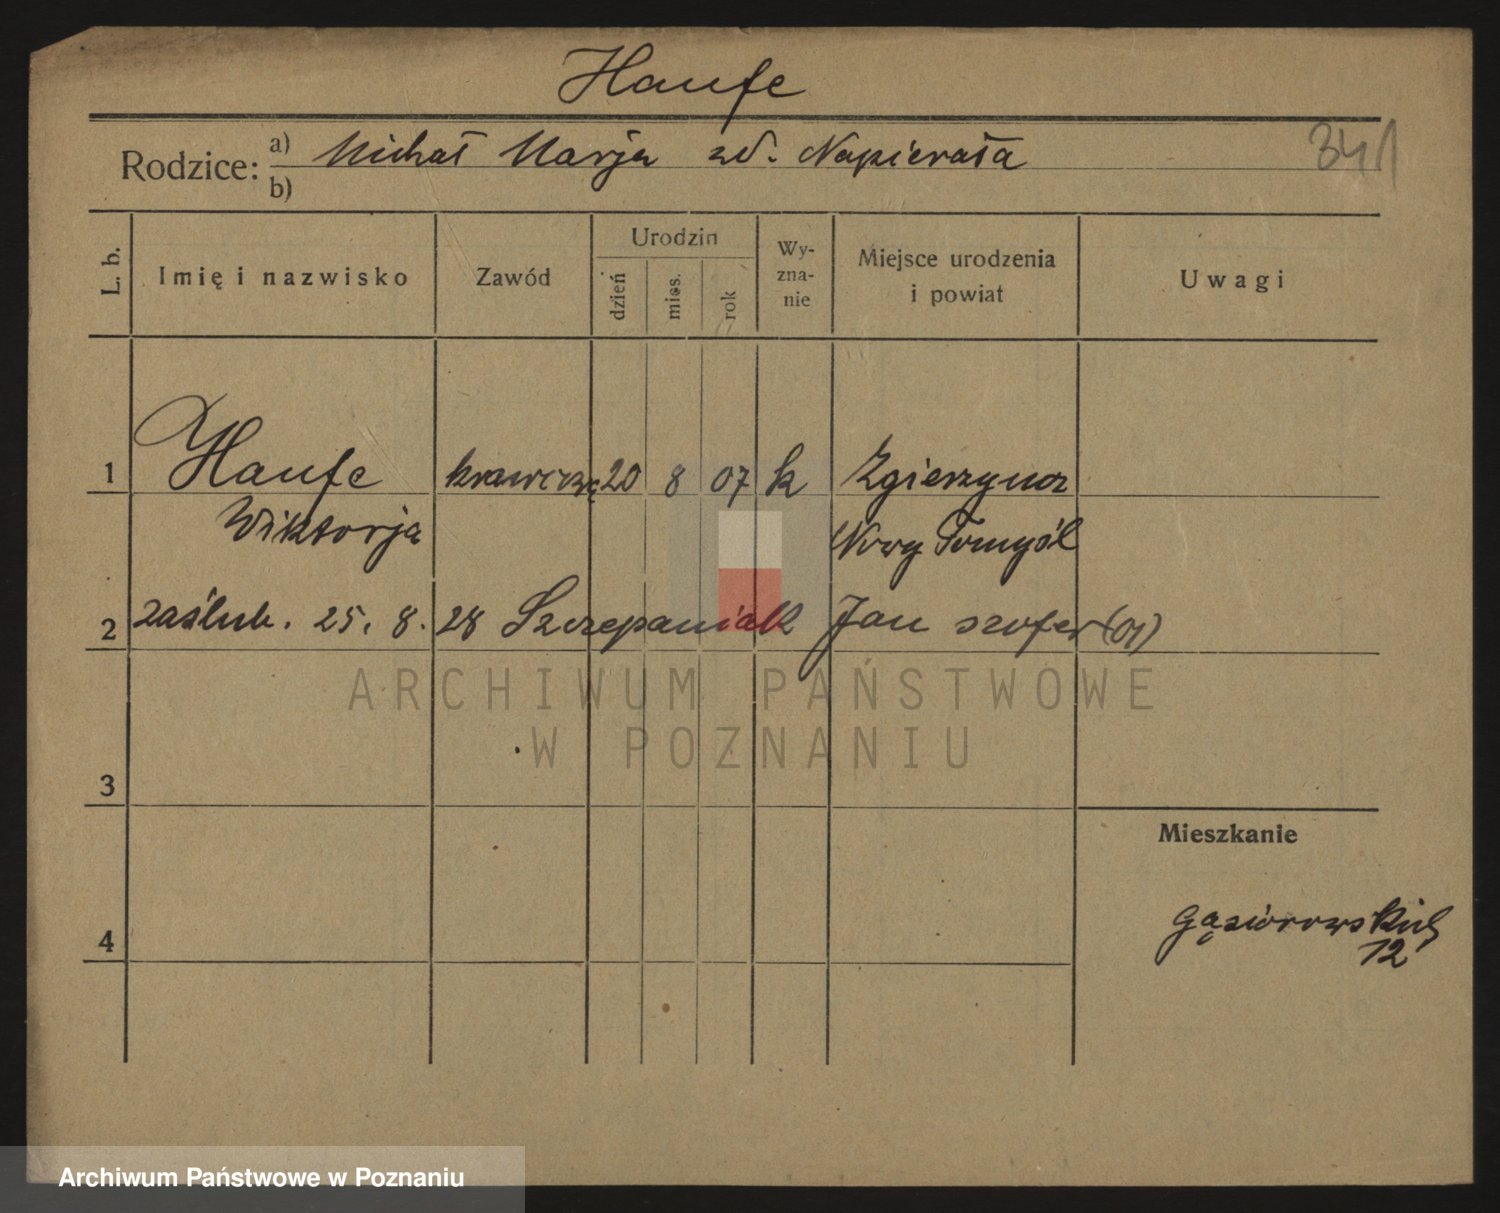 Haufe
341
Rodzice: a) Michał Marja zd. Napierała
b)
L. b.
Imię i nazwisko
Zawód
Urodzin
dzień
mies.
rok
Wy-
zna-
nie
Miejsce urodzenia
i powiat
Uwagi
1 Haufe krawczę 20 8 07 k Zgierzynca
Wiktorja Nowy Tomyśl
2 zaślub. 25. 8. 28 Szczepaniak Jan szofer (01)
ARCHIWUM PAŃSTWOWE
W POZNANIU
3
Mieszkanie
4 Gąsiorowskich
12
Archiwum Państwowe w Poznaniu